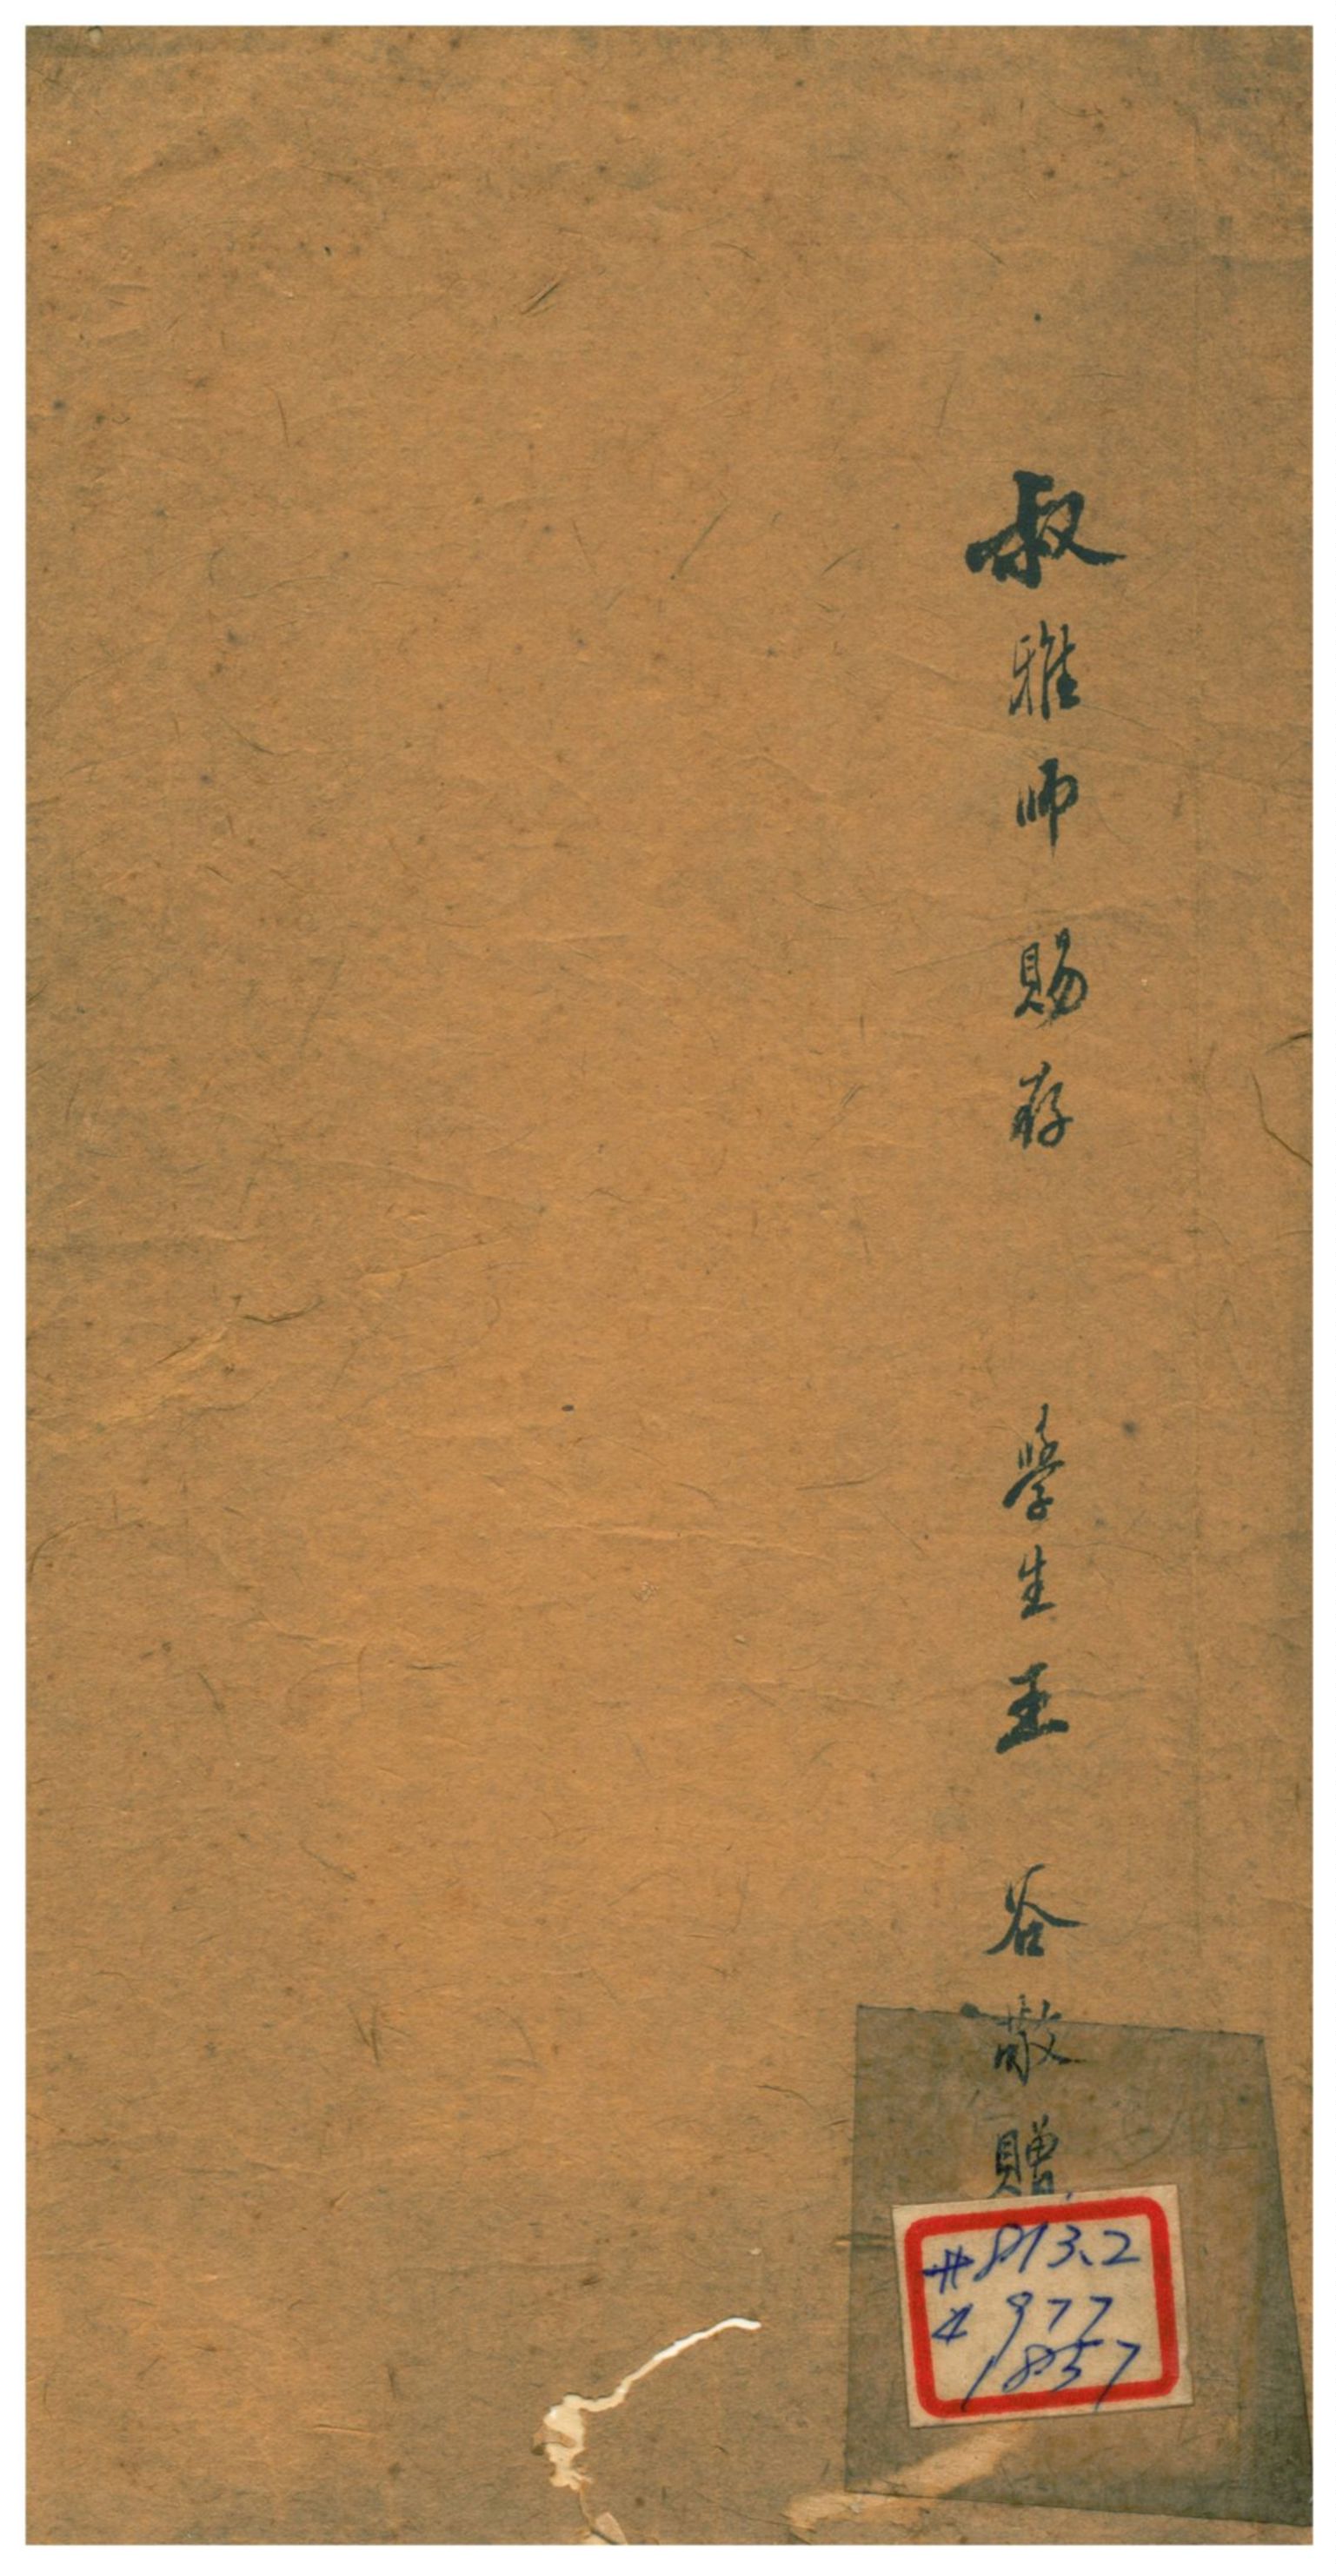 叔雅師賜存　學生王　谷敬贈
#813.2
4977
1857